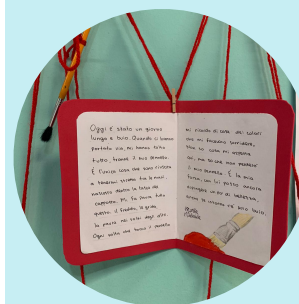 Oggi è stato un giorno
lungo e buio. Quando ci hanno
portato via, mi hanno tolto
tutto, tranne il mio pennello.
È l'unica cosa che sono riuscita
a tenermi stretta tra le mani,
nascosto dentro la tasca del
cappotto. Mi fa paura tutto
questo: il freddo, le grida,
la paura nei volti degli altri.
Ogni volta che tocco il pennello
mi ricordo di casa, dei colori
che mi facevano sorridere.
Non so cosa mi
ma so che non
il mio pennello. È la mia
forza, con lui posso ancora
un po' di